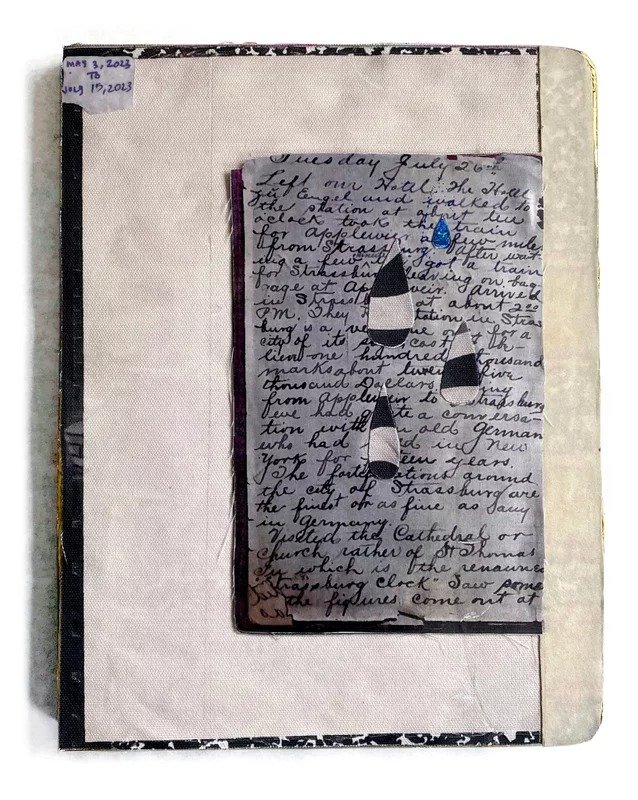 MAY 3, 2023
TO
JULY 15, 2023
Tuesday July 26th
Left our Hotel. The Hotel
zu Engel and walked to
the station at about ten
oclock took the train
for Appleweir a few miles
from Strassburg. After wait-
ing a few got a train
for Strassburg leaving our bag
gage at Appleweir. Arrived
in Strass at about 2 00
P.M. They station in Stras
burg is a one for a
city of its cost
lion one hundred thousand
marks about twenty five
thousand Dollars.
from Appleweir to Strassburg
we had quite a conversa-
tion with an old German
who had in New
York for teen years.
The fortifications around
the city of Strassburg are
the finest or as fine as any
in Germany.
Visited the Cathedral or
church rather of St Thomas
in which is the renowned
"Strassburg Clock" Saw some
the figures come out at